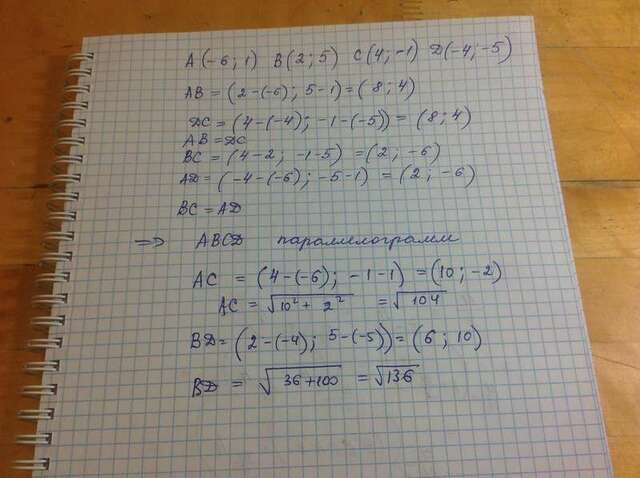 A(-6; 1) B(2; 5) C(4; -1) D(-4; -5)
AB = (2-(-6); 5-1) = (8; 4)
DC = (4-(-4); -1-(-5)) = (8; 4)
AB = DC
BC = (4-2; -1-5) = (2; -6)
AD = (-4-(-6); -5-1) = (2; -6)
BC = AD
=> ABCD параллелограмм
AC = (4-(-6); -1-1) = (10; -2)
AC = √10² + 2² = √104
BD = (2-(-4); 5-(-5)) = (6; 10)
BD = √36+100 = √136